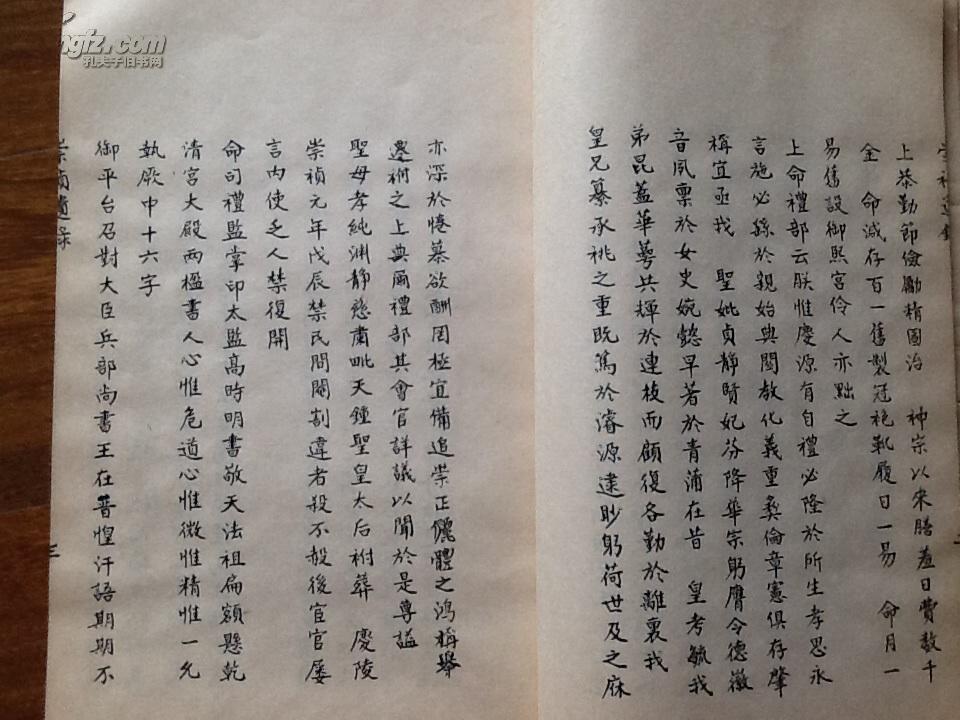 上恭勤節儉勵精圖治　神宗以來膳羞日費數千
金　命減存百一舊製冠袍靴履日一易　命月一
易舊設御熙宮伶人亦黜之
上命禮部云朕惟慶源有自禮必隆於所生孝思永
言施必繇於親始典閎教化義重彜倫章憲俱存肇
稱宜亟我　聖妣貞靜賢妃芬降華宗躬膺令德徽
音夙稟於女史婉懿早著於青蒲在昔　皇考毓我
弟昆蓋華萼共輝於連枝而顧復各勤於離裏我
皇兄纂承祧之重既篤於濬源逮眇躬荷世及之庥
亦深於惓慕欲酬罔極宜備追崇正儷體之鴻稱舉
遷祔之上典爾禮部其會官詳議以聞於是尊謚
聖母孝純淵靜慈肅毗天鍾聖皇太后祔葬　慶陵
崇禎元年戊辰禁民間閹割違者殺不赦後宦官屢
言內使乏人禁復開
命司禮監掌印太監高時明書敬天法祖扁額懸乾
清宮大殿兩楹書人心惟危道心惟微惟精惟一允
執厥中十六字
御平台召對大臣兵部尚書王在晉惶汗語期期不
崇禎遺錄
三